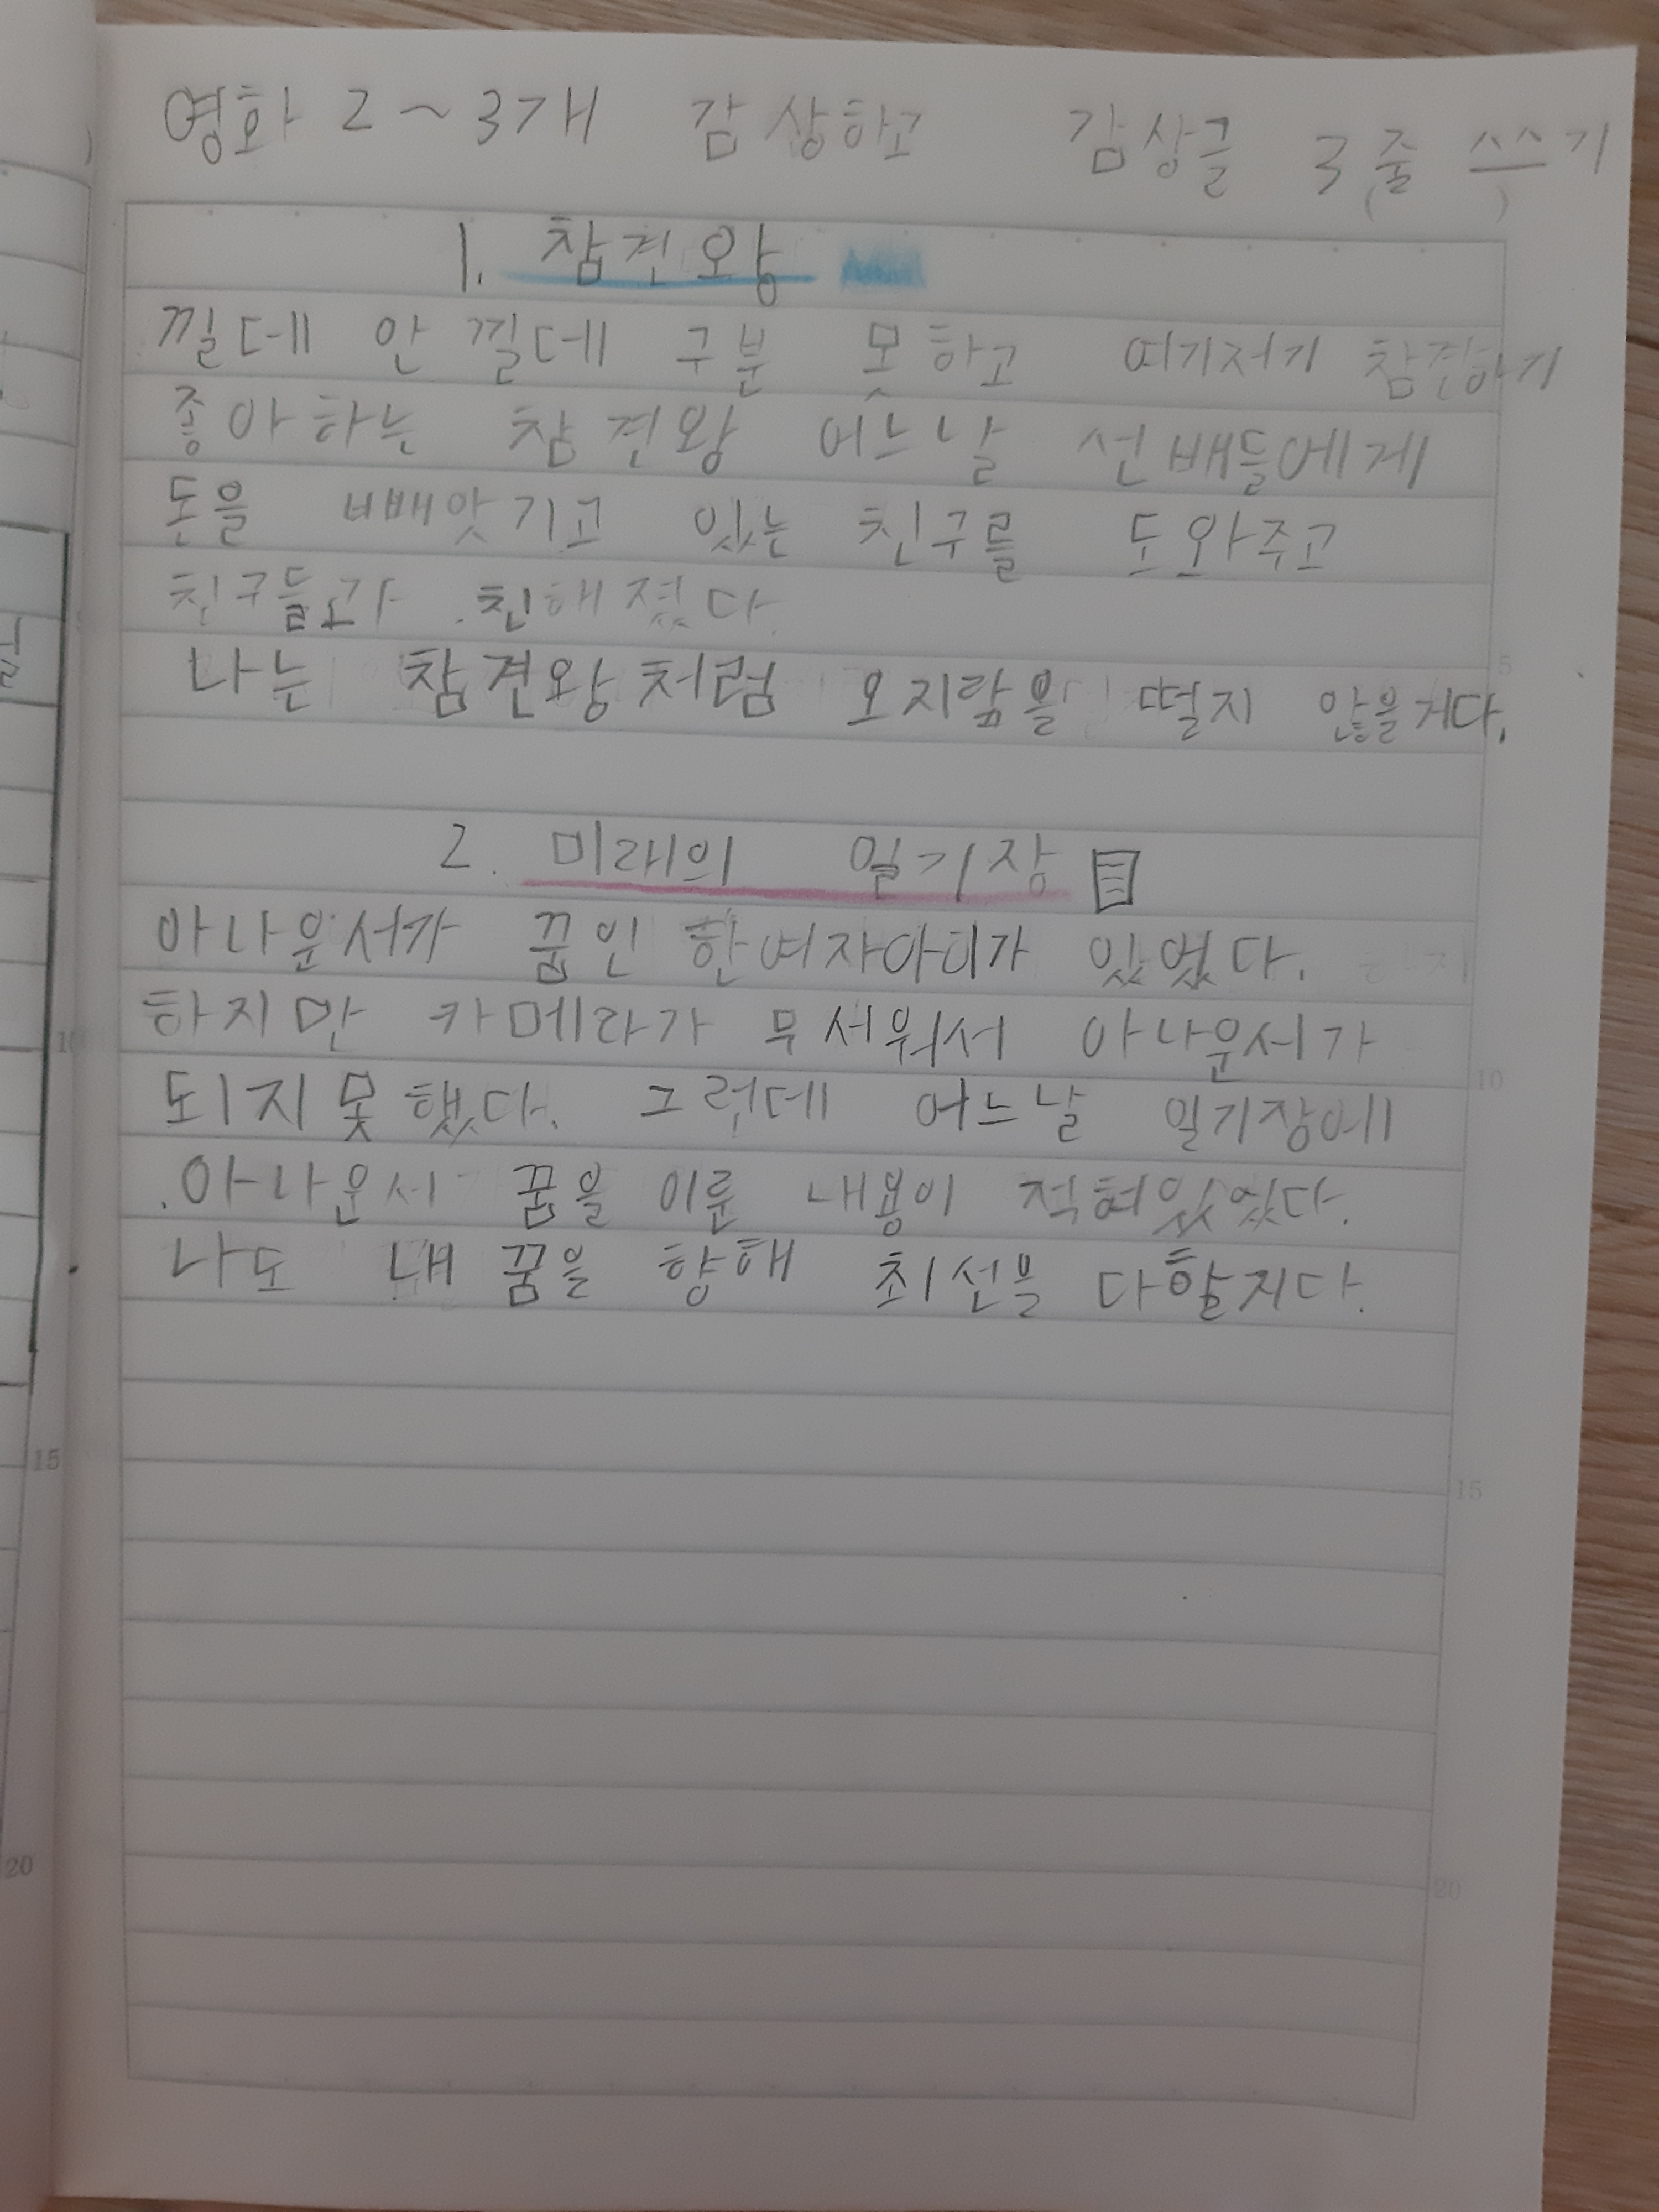 영화 2~3개 감상하고 감상글 3줄 쓰기
1. 참견왕
낄데 안 낄데 구분 못하고 여기저기 참견하기
좋아하는 참견왕 어느날 선배들에게
돈을 빼앗기고 있는 친구를 도와주고
친구들과 친해졌다
나는 참견왕처럼 오지랖을 떨지 않을거다.
2. 미래의 일기장
아나운서가 꿈인 한여자아이가 있었다.
하지만 카메라가 무서워서 아나운서가
되지못했다. 그런데 어느날 일기장에
아나운서 꿈을 이룬 내용이 적혀있었다.
나도 내 꿈을 향해 최선을
5
10
15
20
10
15
20